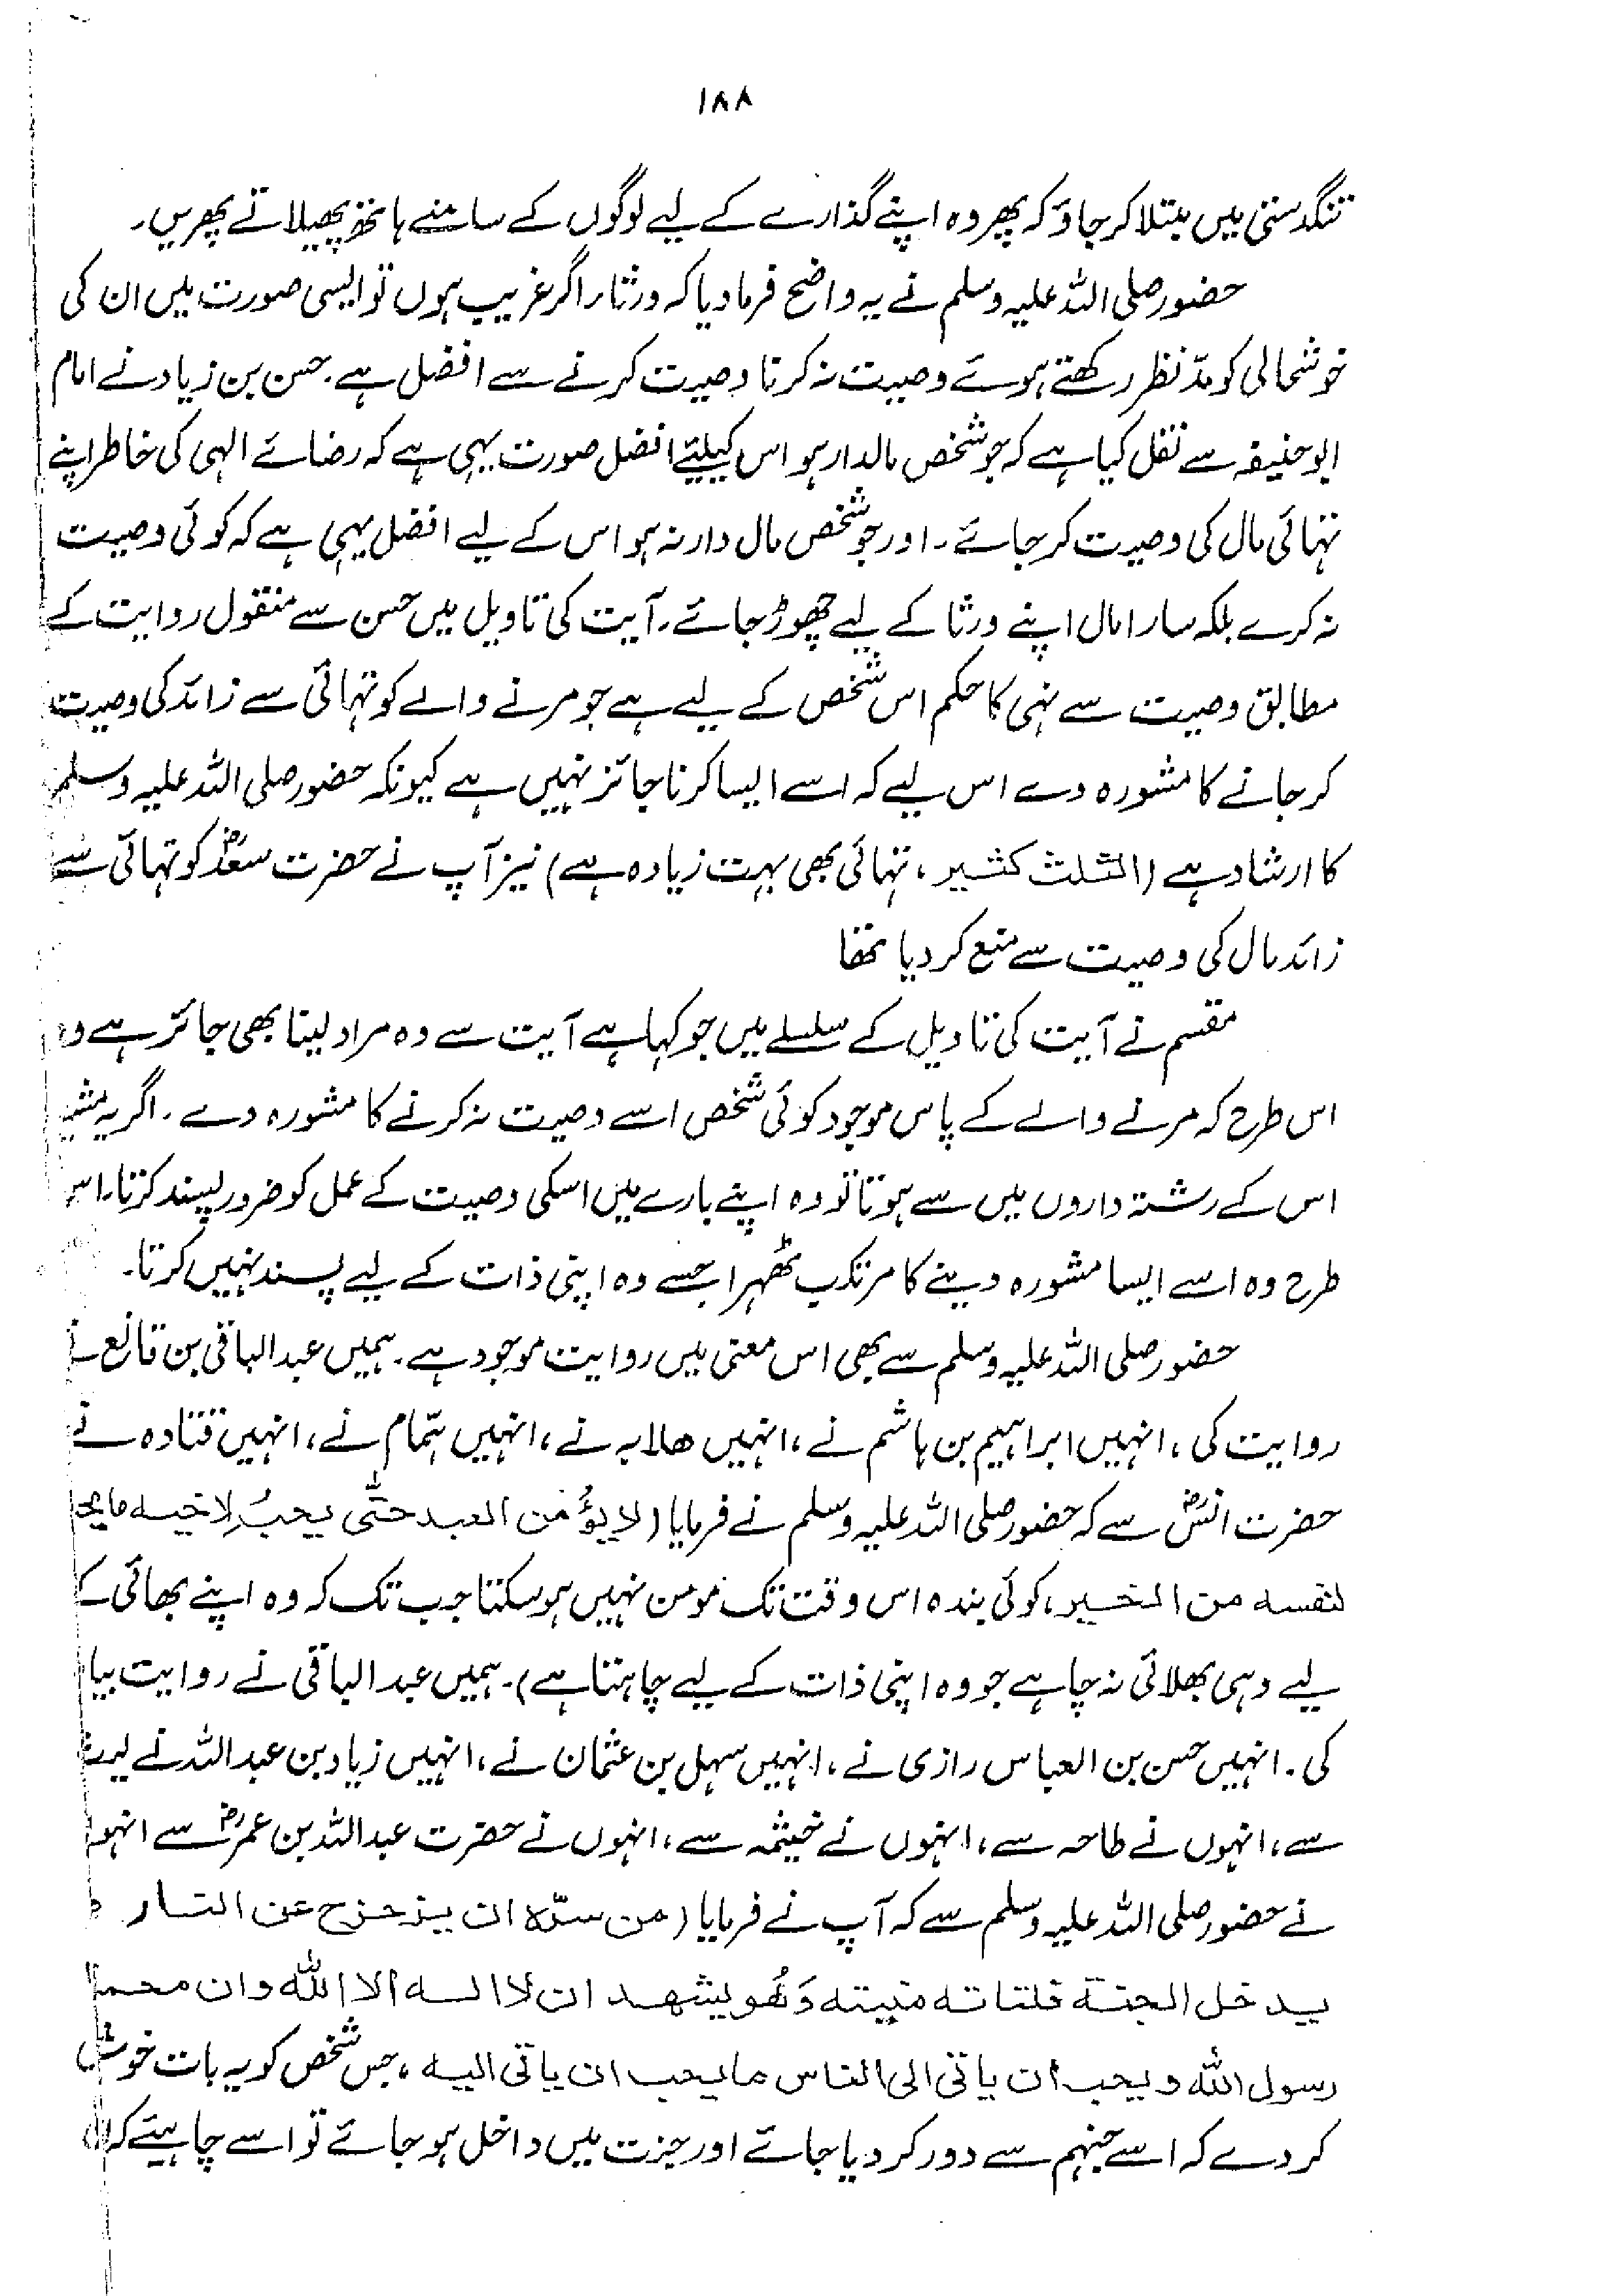 ۱۸۸
تنگدستی میں مبتلا کر جاؤ کہ پھر وہ اپنے گذارے کے لیے لوگوں کے سامنے ہاتھ پھیلاتے پھریں۔
حضور صلی اللہ علیہ وسلم نے یہ واضح فرما دیا کہ ورثار اگر غریب ہوں تو ایسی صورت میں ان کی
خوشحالی کو مدّ نظر رکھتے ہوئے وصیت نہ کرنا وصیت کرنے سے افضل ہے۔ حسن بن زیاد نے امام
ابو حنیفہ سے نقل کیا ہے کہ جو شخص مالدار ہو اس کیلئے افضل صورت یہی ہے کہ رضائے الہی کی خاطر اپنے
تہائی مال کی وصیت کر جائے۔ اور جو شخص مال دار نہ ہو اس کے لیے افضل یہی ہے کہ کوئی وصیت
نہ کرے بلکہ سارا مال اپنے ورثا کے لیے چھوڑ جائے۔ آیت کی تاویل میں حسن سے منقول روایت کے
مطابق وصیت سے نہی کا حکم اس شخص کے لیے ہے جو مرنے والے کو تہائی سے زائد کی وصیت
کر جانے کا مشورہ دے اس لیے کہ اسے ایسا کرنا جائز نہیں ہے کیونکہ حضور صلی اللہ علیہ وسلم
کا ارشاد ہے (الثلث کثیر، تہائی بھی بہت زیادہ ہے) نیز آپ نے حضرت سعدؓ کو تہائی سے
زائد مال کی وصیت سے منع کر دیا تھا
مقسم نے آیت کی تاویل کے سلسلے میں جو کہا ہے آیت سے وہ مراد لینا بھی جائز ہے وہ
اس طرح کہ مرنے والے کے پاس موجود کوئی شخص اسے وصیت نہ کرنے کا مشورہ دے۔ اگر یہ
اس کے رشتہ داروں میں سے ہوتا تو وہ اپنے بارے میں اسکی وصیت کے عمل کو ضرور پسند کرتا۔ اس
طرح وہ اسے ایسا مشورہ دینے کا مرتکب ٹھہرا جسے وہ اپنی ذات کے لیے پسند نہیں کرتا۔
حضور صلی اللہ علیہ وسلم سے بھی اس معنی میں روایت موجود ہے۔ ہمیں عبد الباقی بن قانع نے
روایت کی، انہیں ابراہیم بن ہاشم نے، انہیں ھدبہ نے، انہیں ہمّام نے، انہیں قتادہ نے
حضرت انسؓ سے کہ حضور صلی اللہ علیہ وسلم نے فرمایا (لا یؤمن العبد حتّٰی یحبُ لِاخیہ ما یح
لنفسہ من الخیر، کوئی بندہ اس وقت تک مومن نہیں ہو سکتا جب تک کہ وہ اپنے بھائی کے
لیے وہی بھلائی نہ چاہے جو وہ اپنی ذات کے لیے چاہتا ہے)۔ ہمیں عبد الباقی نے روایت بیا
کی۔ انہیں حسن بن العباس رازی نے، انہیں سہل بن عثمان نے، انہیں زیاد بن عبد اللہ نے لیث
سے، انہوں نے طلحہ سے، انہوں نے خیثمہ سے، انہوں نے حضرت عبد اللہ بن عمرؓ سے انہو
نے حضور صلی اللہ علیہ وسلم سے کہ آپ نے فرمایا (من سرّہ ان یزحزح عن النار و
یدخل الجنۃ فلتاتہ منیتہ وَھُو یشھد ان لا الہ الا اللہ وان محمدا
رسول اللہ و یحب ان یاتی الی الناس ما یحب ان یاتی الیہ، جس شخص کو یہ بات خوش
کر دے کہ اسے جہنم سے دور کر دیا جائے اور جنت میں داخل ہو جائے تو اسے چاہیئے کہ